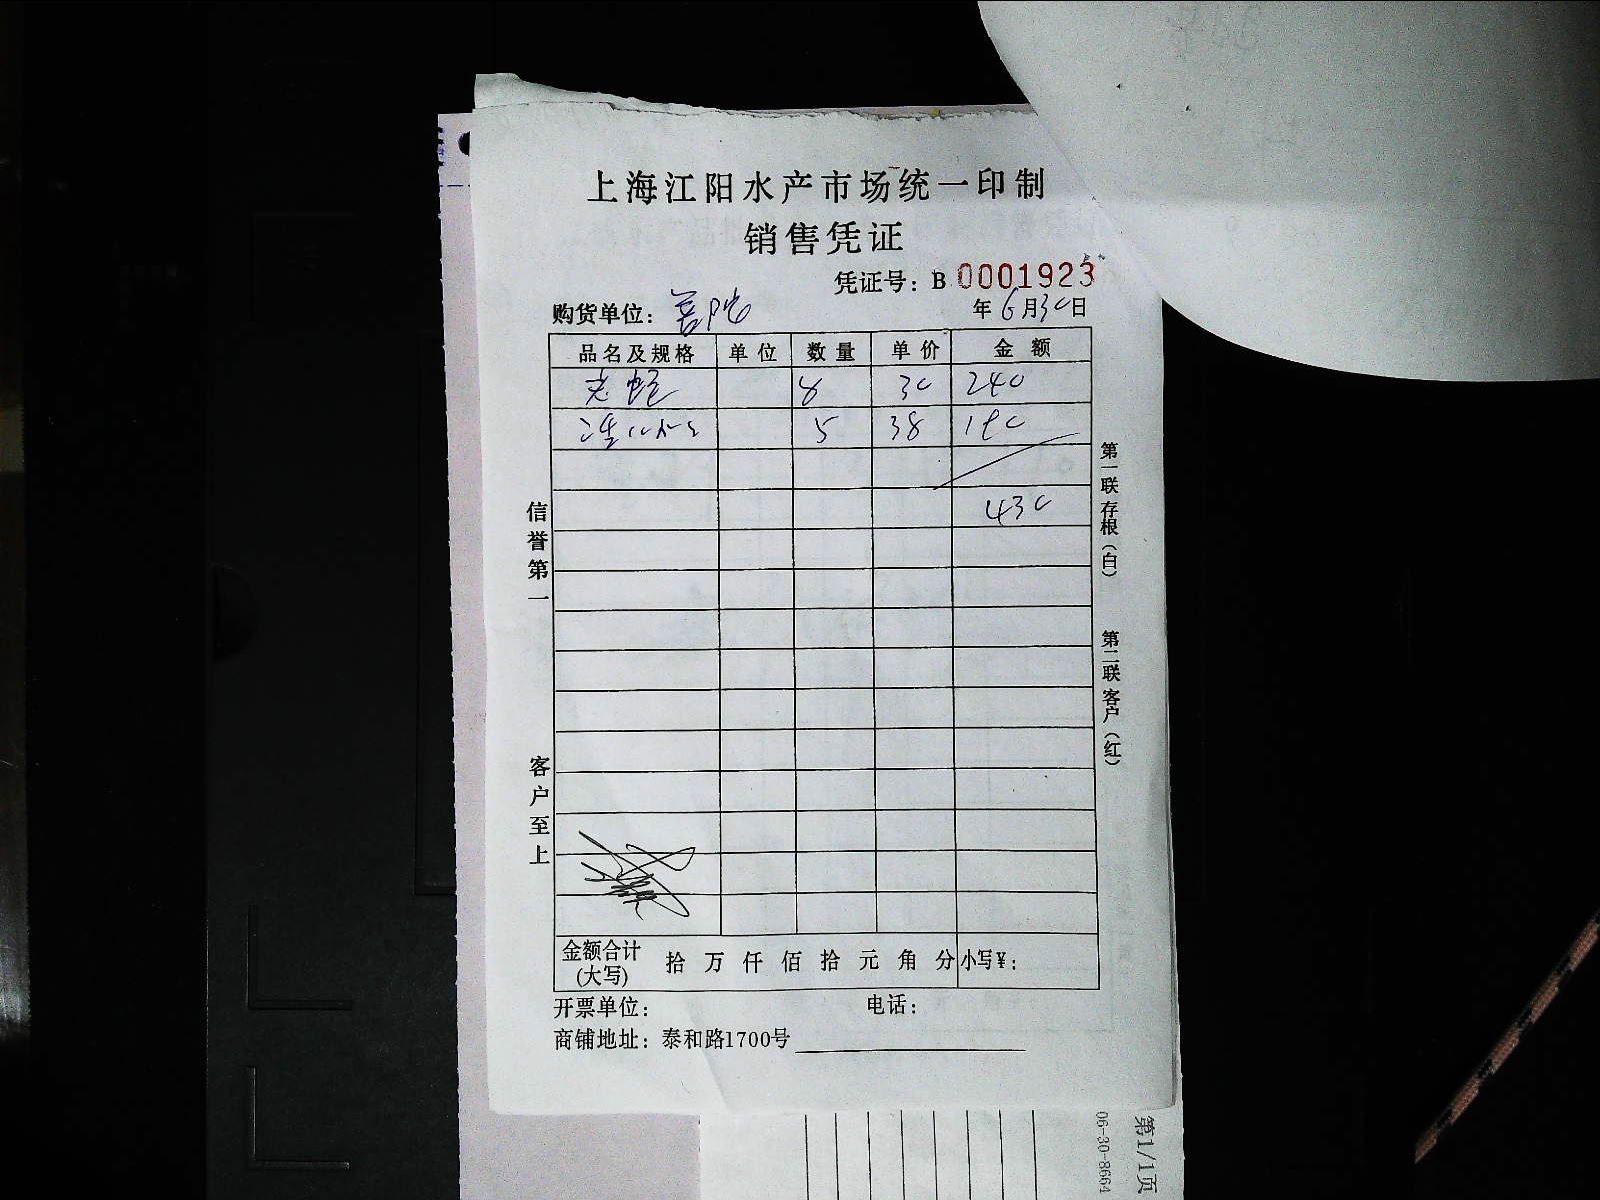 上海江阳水产市场统一印制
销售凭证
凭证号：B 0001923
购货单位：普陀 年6月30日
品名及规格 单位 数量 单价 金额
8 30 240
5 38 190
430
信誉第一
客户至上
第一联存根（白）
第二联客户（红）
金额合计(大写) 拾 万 仟 佰 拾 元 角 分 小写¥：
开票单位： 电话：
商铺地址：泰和路1700号
第1/1页
06-30-8664